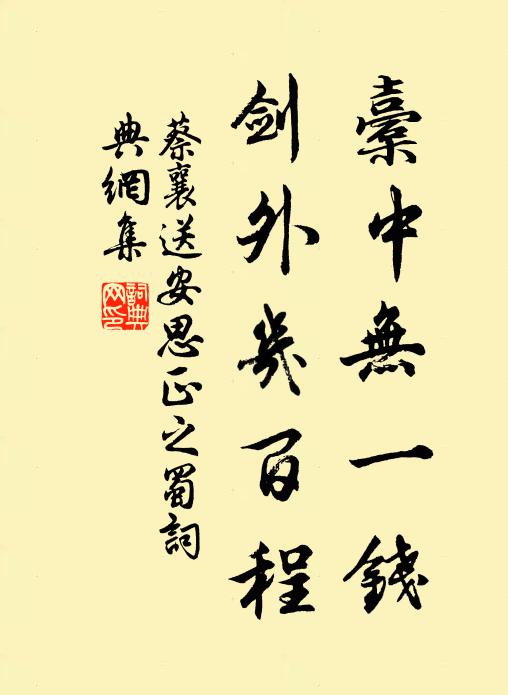 橐中無一錢
劍外幾百程
蔡襄送安思正之蜀詞
典網集
詞典
网印